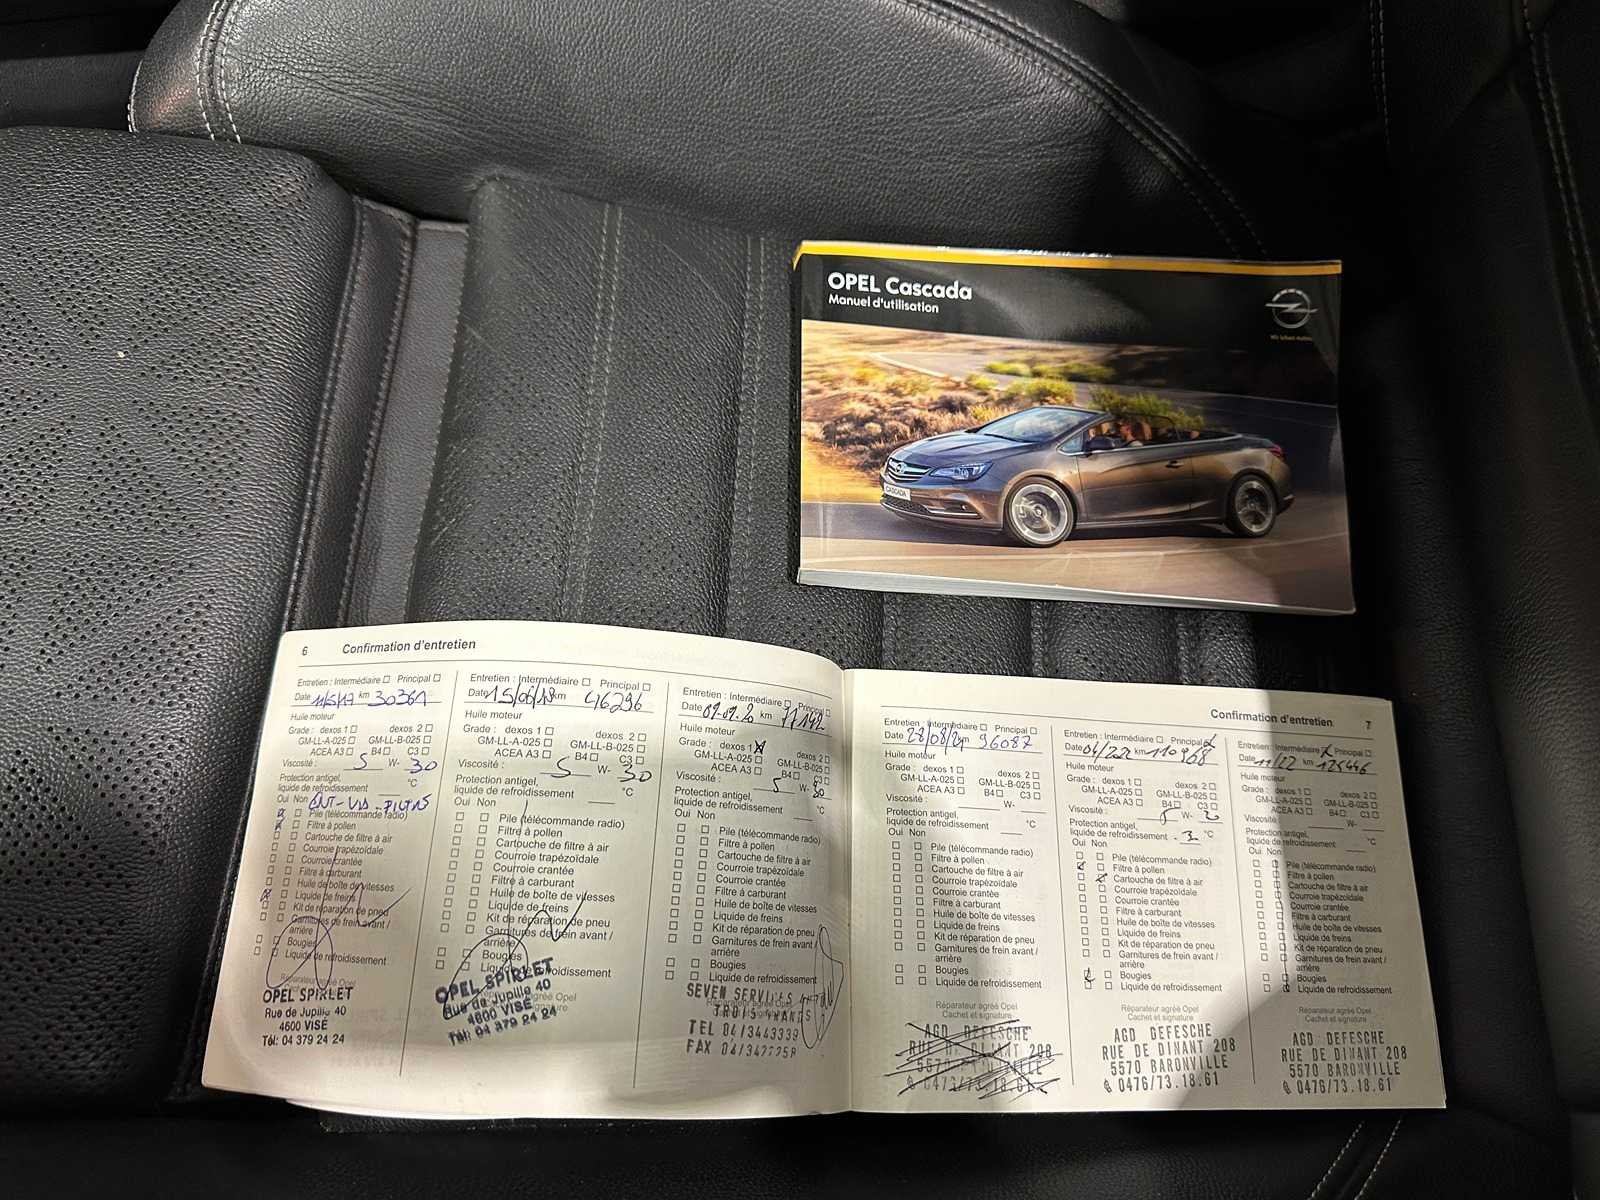 OPEL Cascada
Manuel d'utilisation
CASCADA
6 Confirmation d'entretien
Entretien : Intermédiaire Principal
Date 11/5/17 km 30361
Huile moteur
Grade : dexos 1 dexos 2
GM-LL-A-025 GM-LL-B-025
ACEA A3 B4 C3
Viscosité : 5 W- 30
Protection antigel,
liquide de refroidissement °C
Oui Non
Pile (télécommande radio)
Filtre à pollen
Cartouche de filtre à air
Courroie trapézoïdale
Courroie crantée
Filtre à carburant
Huile de boîte de vitesses
Liquide de freins
Kit de réparation de pneu
Garnitures de frein avant /
arrière
Bougies
Liquide de refroidissement
Réparateur agréé Opel
OPEL SPIRLET
Rue de Jupille 40
4600 VISÉ
Tél: 04 379 24 24
Entretien : Intermédiaire Principal
Date 15/06/18 km 46296
Huile moteur
Grade : dexos 1 dexos 2
GM-LL-A-025 GM-LL-B-025
ACEA A3 B4 C3
Viscosité : 5 W- 30
Protection antigel,
liquide de refroidissement °C
Oui Non
Pile (télécommande radio)
Filtre à pollen
Cartouche de filtre à air
Courroie trapézoïdale
Courroie crantée
Filtre à carburant
Huile de boîte de vitesses
Liquide de freins
Kit de réparation de pneu
Garnitures de frein avant /
arrière
Bougies
Liquide de refroidissement
OPEL SPIRLET
Rue de Jupille 40
4600 VISÉ
Tél: 04 379 24 24
Entretien : Intermédiaire Principal
Date 09.09.20 km 77142
Huile moteur
Grade : dexos 1 dexos 2
GM-LL-A-025 GM-LL-B-025
ACEA A3 B4 C3
Viscosité : 5 W- 30
Protection antigel,
liquide de refroidissement °C
Oui Non
Pile (télécommande radio)
Filtre à pollen
Cartouche de filtre à air
Courroie trapézoïdale
Courroie crantée
Filtre à carburant
Huile de boîte de vitesses
Liquide de freins
Kit de réparation de pneu
Garnitures de frein avant /
arrière
Bougies
Liquide de refroidissement
Réparateur agréé Opel
SEVEN SERVICES
TEL 04/3443339
FAX
Confirmation d'entretien 7
Entretien : Intermédiaire Principal
Date 28/08/21 km 96087
Huile moteur
Grade : dexos 1 dexos 2
GM-LL-A-025 GM-LL-B-025
ACEA A3 B4 C3
Viscosité : W-
Protection antigel,
liquide de refroidissement °C
Oui Non
Pile (télécommande radio)
Filtre à pollen
Cartouche de filtre à air
Courroie trapézoïdale
Courroie crantée
Filtre à carburant
Huile de boîte de vitesses
Liquide de freins
Kit de réparation de pneu
Garnitures de frein avant /
arrière
Bougies
Liquide de refroidissement
Réparateur agréé Opel
Cachet et signature
AGD DEFESCHE
Entretien : Intermédiaire Principal
Date 04/22 km 110968
Huile moteur
Grade : dexos 1 dexos 2
GM-LL-A-025 GM-LL-B-025
ACEA A3 B4 C3
Viscosité : W-
Protection antigel,
liquide de refroidissement °C
Oui Non
Pile (télécommande radio)
Filtre à pollen
Cartouche de filtre à air
Courroie trapézoïdale
Courroie crantée
Filtre à carburant
Huile de boîte de vitesses
Liquide de freins
Kit de réparation de pneu
Garnitures de frein avant /
arrière
Bougies
Liquide de refroidissement
Réparateur agréé Opel
Cachet et signature
AGD DEFESCHE
RUE DE DINANT 208
5570 BARONVILLE
0476/73.18.61
Entretien : Intermédiaire Principal
Date 11/22 km 125446
Huile moteur
Grade : dexos 1 dexos 2
GM-LL-A-025 GM-LL-B-025
ACEA A3 B4 C3
Viscosité : W-
Protection antigel,
liquide de refroidissement °C
Oui Non
Pile (télécommande radio)
Filtre à pollen
Cartouche de filtre à air
Courroie trapézoïdale
Courroie crantée
Filtre à carburant
Huile de boîte de vitesses
Liquide de freins
Kit de réparation de pneu
Garnitures de frein avant /
arrière
Bougies
Liquide de refroidissement
Réparateur agréé Opel
Cachet et signature
AGD DEFESCHE
RUE DE DINANT 208
5570 BARONVILLE
0476/73.18.61